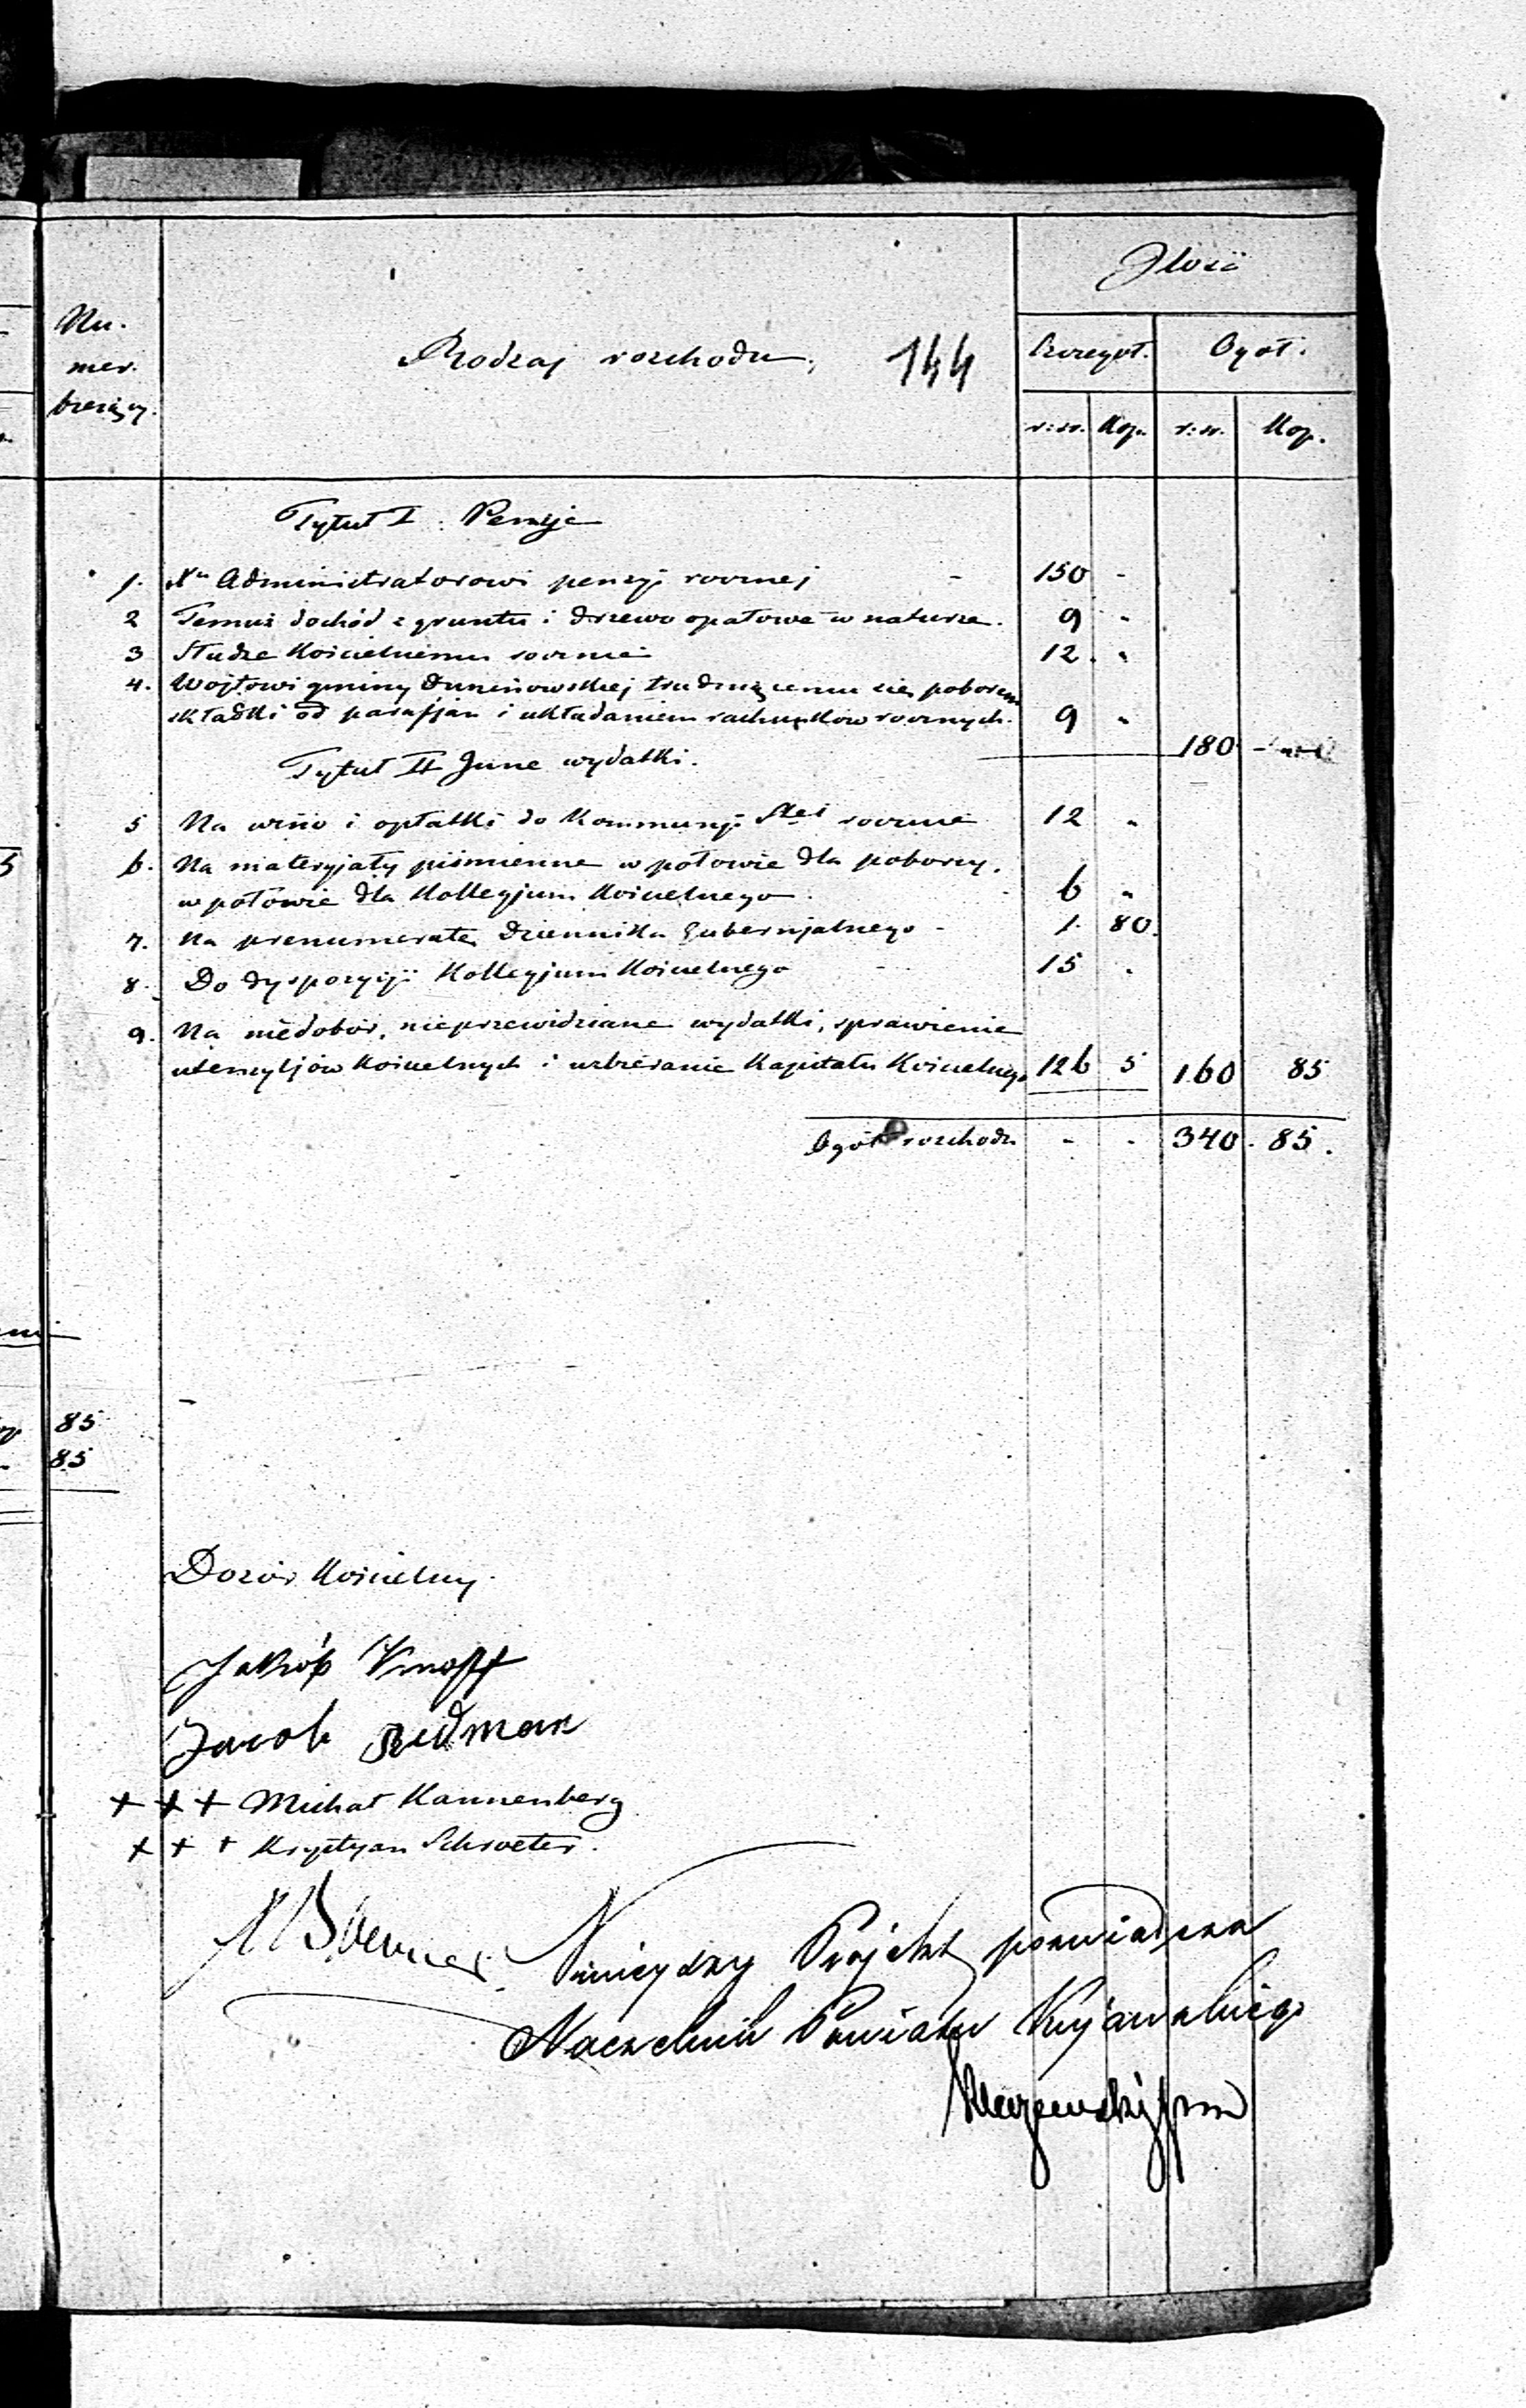 Ilość
Nu-
mer.
bieżący.
Rodzaj rozchodu.
144
Szczegół.
Ogół.
r:sr. Kop. r:sr. Kop.
Tytuł I. Pensje
1. Xu Administratorowi pensyi rocznej - 150 -
2 Temuż dochód z gruntu i drzewo opałowe w naturze. 9 "
3 Słudze Kościelnemu rocznie 12. "
4. Wójtowi gminy Duninowskiej trudniącemu się poborem
składki od parafjan i układaniem rachunków rocznych. 9 "
180
Tytuł II Inne wydatki.
5 Na wino i opłatki do Kommunyi Stej rocznie 12 "
6. Na materyjały piśmienne w połowie dla poborcy,
w połowie dla Kollegjum Kościelnego. 6 "
7. Na prenumeratę Dziennika Gubernjalnego - 1. 80.
8. Do dyspozycji Kollegjum Kościelnego 15 .
9. Na niedobór, nieprzewidziane wydatki, sprawienie
utensyljów Kościelnych i uzbieranie Kapitału Kościelnego 126 5 160 85
Ogół rozchodu - - 340. 85.
85
85
Dozór Kościelny.
Jakób Knopff
Jacob Redman
+ + + Michał Kannenberg
+ + + Krystyan Schroeter.
X Boerner
Niniejszy Projekt poświadcza
Naczelnik Powiatu Kujawskiego